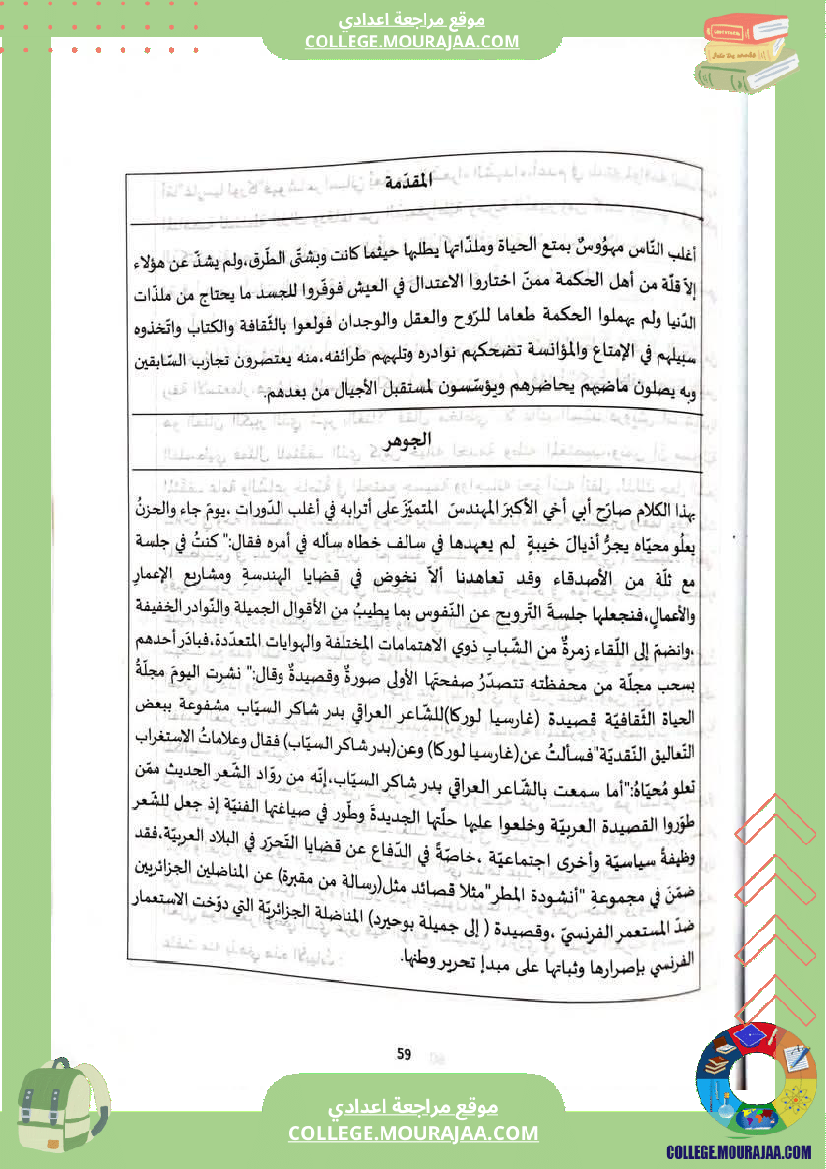 موقع مراجعة اعدادي
COLLEGE.MOURAJAA.COM
المقدّمة
أغلب النّاس مهوُوسٌ بمتع الحياة وملذّاتها يطلبها حيثما كانت وبشتّى الطّرق،ولم يشذّ عن هؤلاء
إلاّ قلّة من أهل الحكمة ممنّ اختاروا الاعتدال في العيش فوفّروا للجسد ما يحتاج من ملذات
الدّنيا ولم يهملوا الحكمة طعاما للرّوح والعقل والوجدان فولعوا بالثّقافة والكتاب واتّخذوه
سبيلهم في الإمتاع والمؤانسة تضحكهم نوادره وتلهيهم طرائفه،منه يعتصرون تجارب السّابقين
وبه يصلون ماضيهم بحاضرهم ويؤسّسون لمستقبل الأجيال من بعدهم.
الجوهر
بهذا الكلام صارّح أبي أخي الأكبرَ المهندسَ المتميّزَ على أترابه في أغلب الدّورات ،يومَ جاء والحزنُ
يعلُو محيّاه يجرُّ أذيالَ خيبةٍ لم يعهدها في سالف خطاه سأله في أمره فقال:" كنتُ في جلسة
مع ثلّة من الأصدقاء وقد تعاهدنا ألاّ نخوض في قضايا الهندسةِ ومشاريع الإعمارِ
والأعمالِ،فنجعلها جلسةَ التّرويح عن النّفوس بما يطيبُ من الأقوال الجميلة والنّوادر الخفيفة
،وانضمّ إلى اللّقاء زمرةٌ من الشّبابِ ذوي الاهتمامات المختلفة والهوايات المتعدّدة،فبادَر أحدهم
بسحب مجلّة من محفظته تتصدّرُ صفحتَها الأولى صورةٌ وقصيدةٌ وقال:" نشرت اليومَ مجلّةُ
الحياة الثّقافيّة قصيدة (غارسيا لوركا)للشّاعر العراقي بدر شاكر السيّاب مشفوعة ببعض
التّعاليق النّقديّة"فسألتُ عن(غارسيا لوركا) وعن(بدر شاكر السيّاب) فقال وعلاماتُ الاستغراب
تعلو مُحيّاهُ:"أما سمعت بالشّاعر العراقي بدر شاكر السيّاب،إنّه من روّاد الشّعر الحديث ممّن
طوّروا القصيدة العربيّة وخلعوا عليها حلّتها الجديدةَ وطّور في صياغتها الفنيّة إذ جعل للشّعر
وظيفةً سياسيّة وأخرى اجتماعيّة ،خاصّةً في الدّفاع عن قضايا التّحرّر في البلاد العربيّة،فقد
ضمّنَ في مجموعة "أنشودة المطر"مثلا قصائد مثل(رسالة من مقبرة) عن المناضلين الجزائريين
ضدّ المستعمر الفرنسيّ ،وقصيدة ( إلى جميلة بوحيرد) المناضلة الجزائريّة التي دوّخت الاستعمار
الفرنسي بإصرارها وثباتها على مبدإ تحرير وطنها.
59
موقع مراجعة اعدادي
COLLEGE.MOURAJAA.COM
COLLEGE.MOURAJAA.COM